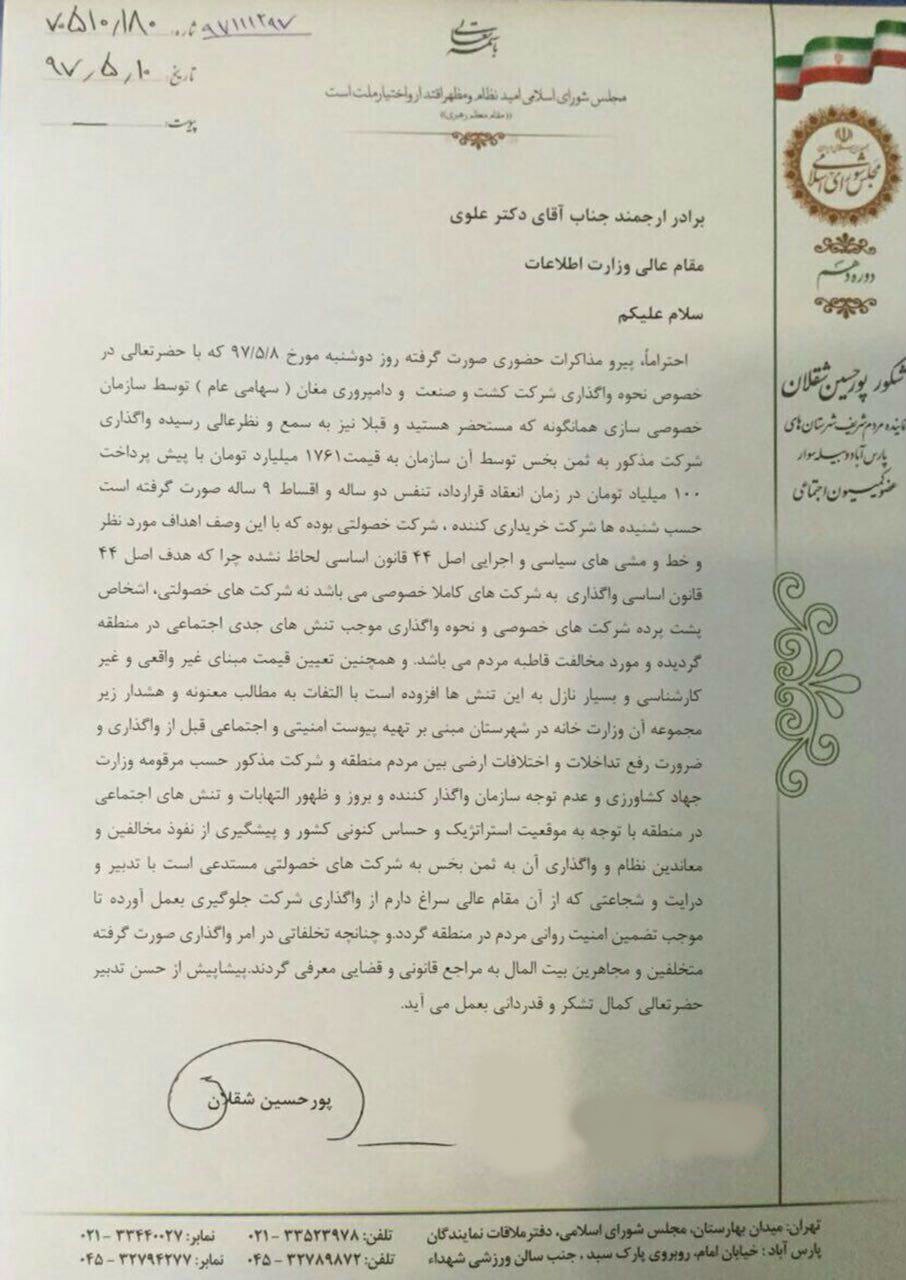 شماره: ۷۰۵۱۰/۱۸۰
۹۷۱۱۱۲۹۷
تاریخ: ۹۷/۵/۱۰
پیوست:
باسمه تعالی
مجلس شورای اسلامی امید نظام و مظهر اقتدار و اختیار ملت است
((مقام معظم رهبری))
مجلس شورای اسلامی
دوره دهم
شکور پورحسین شقلان
نماینده مردم شریف شهرستان های
پارس آباد و بیله سوار
عضو کمیسیون اجتماعی
برادر ارجمند جناب آقای دکتر علوی
مقام عالی وزارت اطلاعات
سلام علیکم
احتراماً، پیرو مذاکرات حضوری صورت گرفته روز دوشنبه مورخ ۹۷/۵/۸ که با حضرتعالی در
خصوص نحوه واگذاری شرکت کشت و صنعت و دامپروری مغان ( سهامی عام ) توسط سازمان
خصوصی سازی همانگونه که مستحضر هستید و قبلا نیز به سمع و نظرعالی رسیده واگذاری
شرکت مذکور به ثمن بخس توسط آن سازمان به قیمت۱۷۶۱ میلیارد تومان با پیش پرداخت
۱۰۰ میلیاد تومان در زمان انعقاد قرارداد، تنفس دو ساله و اقساط ۹ ساله صورت گرفته است
حسب شنیده ها شرکت خریداری کننده ، شرکت خصولتی بوده که با این وصف اهداف مورد نظر
و خط و مشی های سیاسی و اجرایی اصل ۴۴ قانون اساسی لحاظ نشده چرا که هدف اصل ۴۴
قانون اساسی واگذاری به شرکت های کاملا خصوصی می باشد نه شرکت های خصولتی، اشخاص
پشت پرده شرکت های خصوصی و نحوه واگذاری موجب تنش های جدی اجتماعی در منطقه
گردیده و مورد مخالفت قاطبه مردم می باشد. و همچنین تعیین قیمت مبنای غیر واقعی و غیر
کارشناسی و بسیار نازل به این تنش ها افزوده است با التفات به مطالب معنونه و هشدار زیر
مجموعه آن وزارت خانه در شهرستان مبنی بر تهیه پیوست امنیتی و اجتماعی قبل از واگذاری و
ضرورت رفع تداخلات و اختلافات ارضی بین مردم منطقه و شرکت مذکور حسب مرقومه وزارت
جهاد کشاورزی و عدم توجه سازمان واگذار کننده و بروز و ظهور التهابات و تنش های اجتماعی
در منطقه با توجه به موقعیت استراتژیک و حساس کنونی کشور و پیشگیری از نفوذ مخالفین و
معاندین نظام و واگذاری آن به ثمن بخس به شرکت های خصولتی مستدعی است با تدبیر و
درایت و شجاعتی که از آن مقام عالی سراغ دارم از واگذاری شرکت جلوگیری بعمل آورده تا
موجب تضمین امنیت روانی مردم در منطقه گردد.و چنانچه تخلفاتی در امر واگذاری صورت گرفته
متخلفین و مجاهرین بیت المال به مراجع قانونی و قضایی معرفی گردند.پیشاپیش از حسن تدبیر
حضرتعالی کمال تشکر و قدردانی بعمل می آید.
پورحسین شقلان
تهران: میدان بهارستان، مجلس شورای اسلامی، دفتر ملاقات نمایندگان تلفن: ۳۳۵۲۳۹۷۸ -۰۲۱ نمابر: ۳۳۴۴۰۰۲۷ -۰۲۱
پارس آباد : خیابان امام، روبروی پارک سبد ، جنب سالن ورزشی شهداء تلفن: ۳۲۷۸۹۸۷۲ - ۰۴۵ نمابر: ۳۲۷۹۴۲۷۷ - ۰۴۵